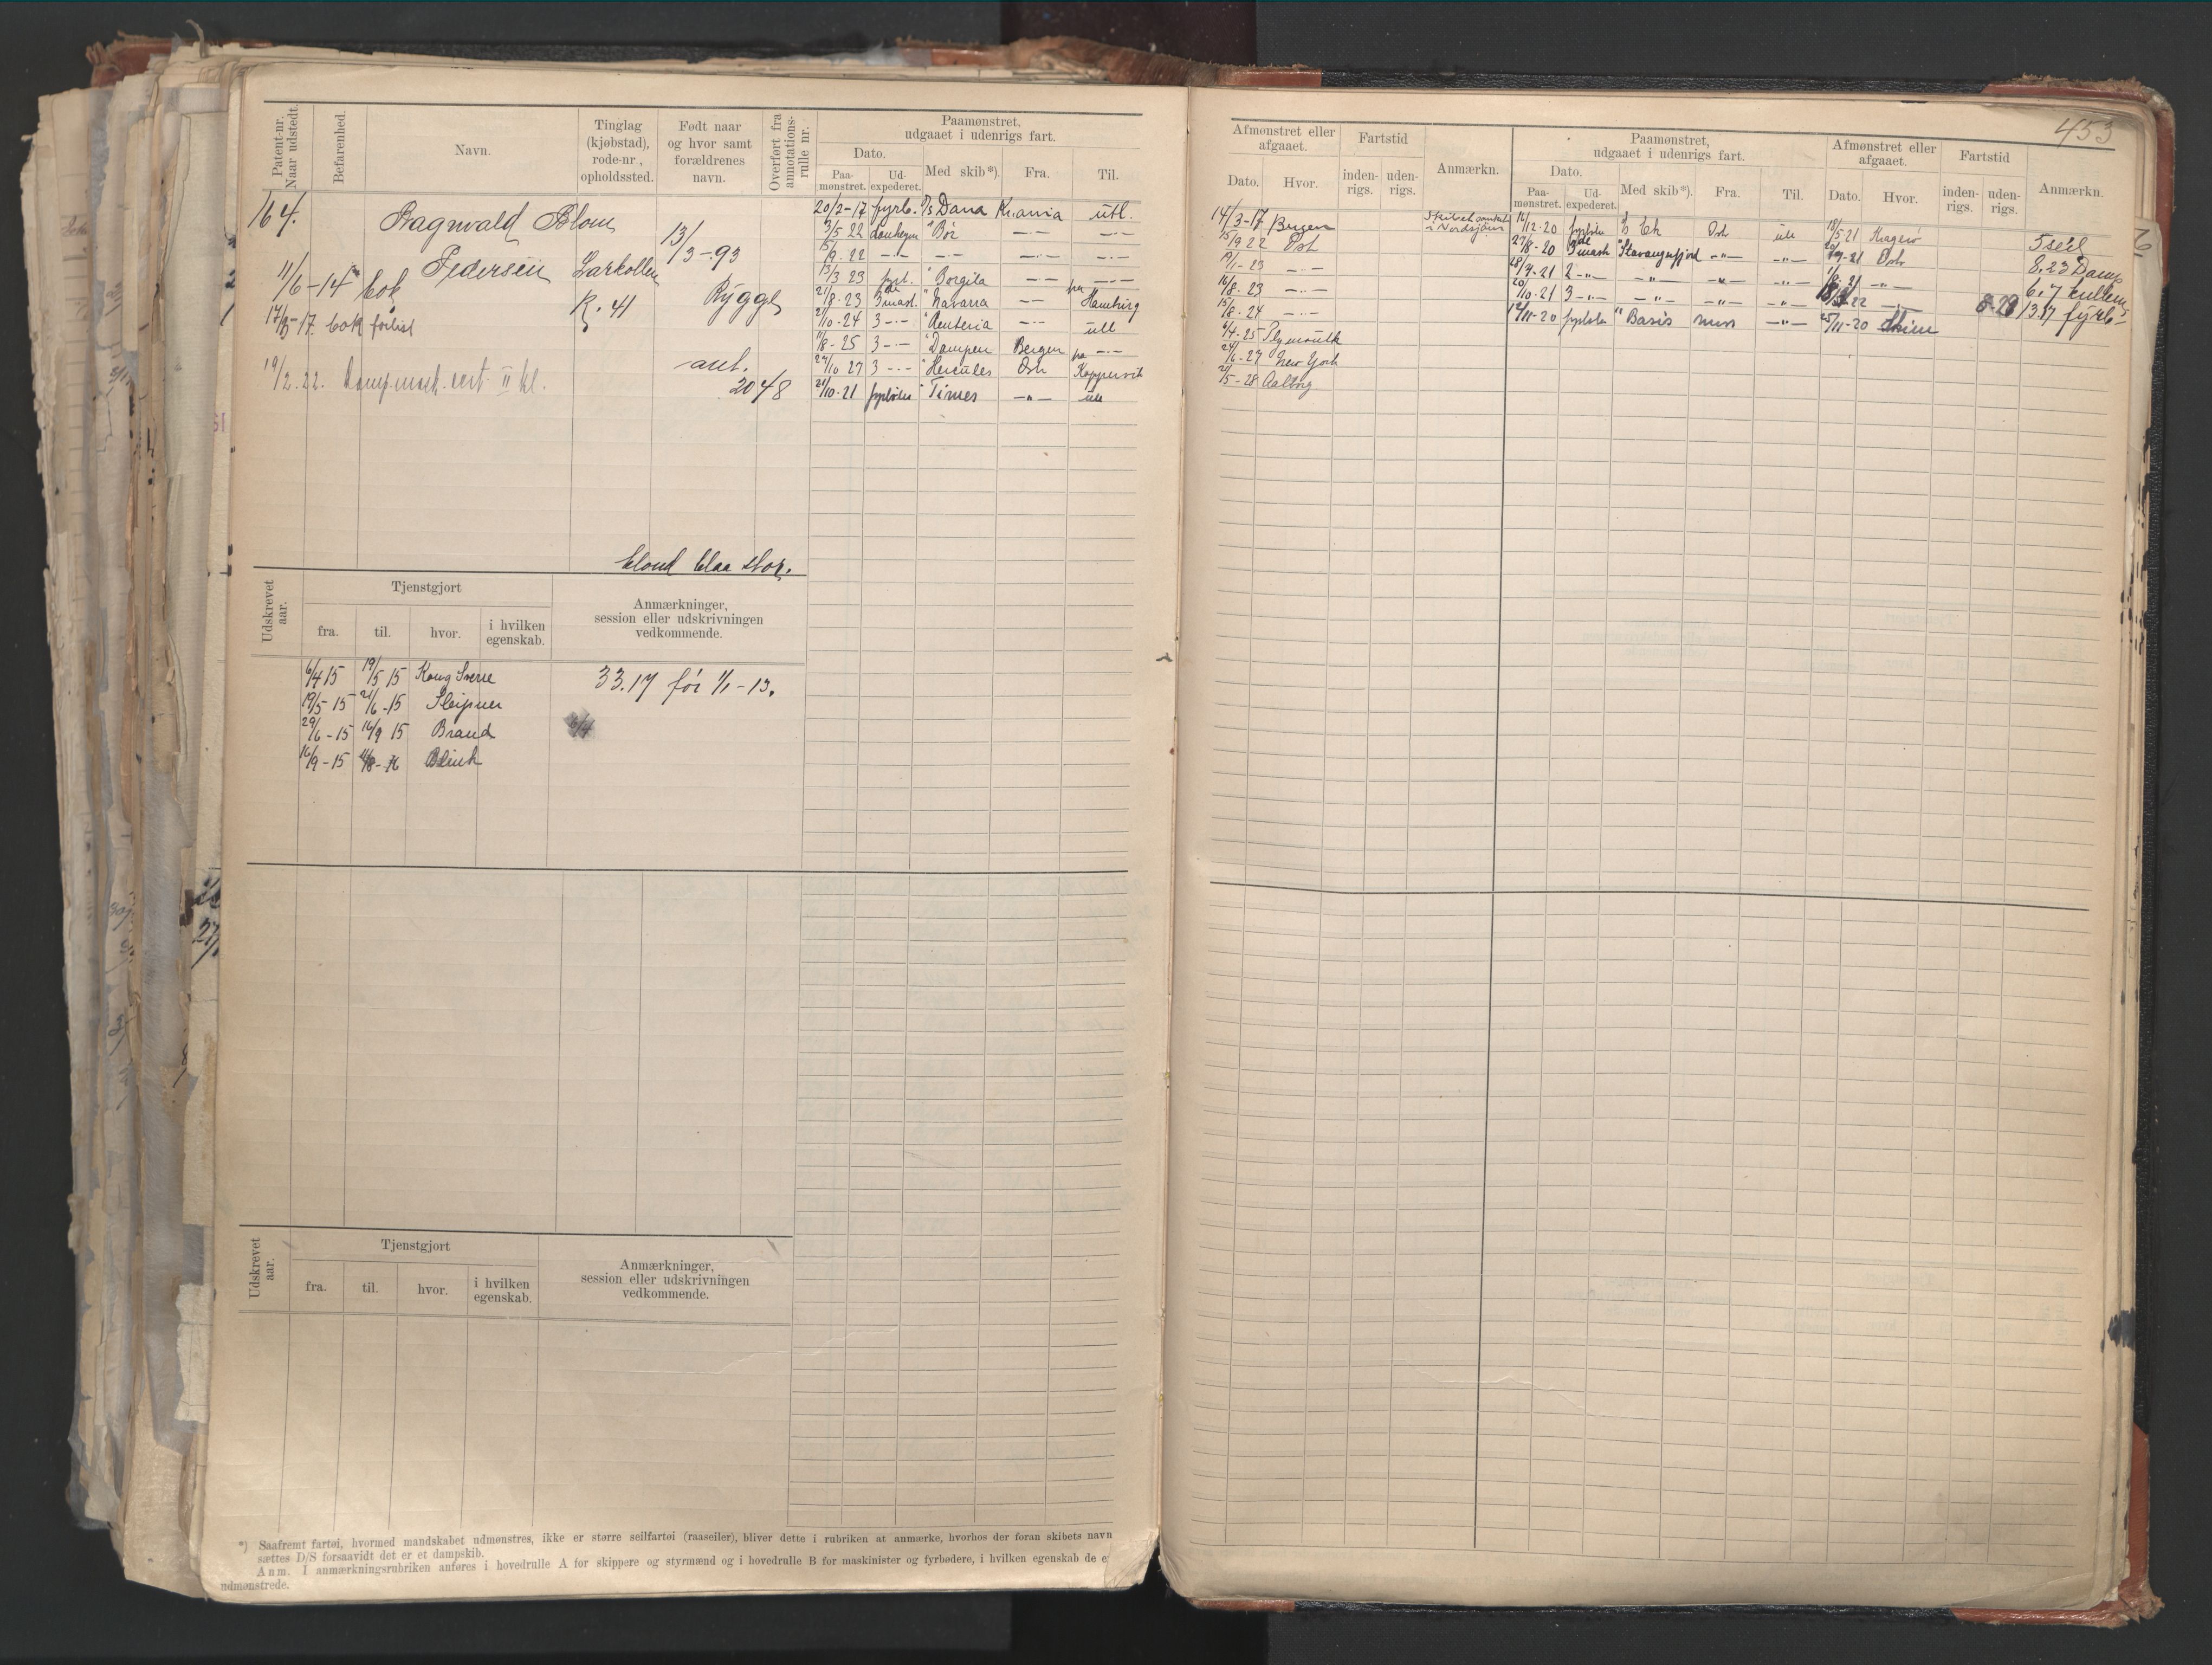 453
Patent-nr. Naar udstedt.
Befarenhed.
Navn.
Tinglag (kjøbstad), rode-nr., opholdssted.
Født naar og hvor samt forældrenes navn.
Overført fra annotations-rulle nr.
Paamønstret, udgaaet i udenrigs fart.
Dato.
Paa-mønstret.
Ud-expederet.
Med skib*).
Fra.
Til.
164.
Ragnvald Blom
Pedersen
Larkollen
R. 41
13/3-93
Rygge
11/6-14 bok
bok forlist
19/2.22. Dampmask.cert II kl.
ant.
2048
blond blaa
20/2-17 fyrb. D/S Dana Kr.ania utl.
3/5 22 " Bör —·— —·—
15/9.22 —·— —·— —·— —·—
13/3 23 fyrb. " Borgila —·— —·—
21/8-23 3 mask. " Navarra —·— Hamburg
21/10-24 3 —·— " Renteria —·— utl
11/8-25 3 —·— " Dampen Bergen —·—
24/10 27 3 —·— " Hercules Oslo Koppervik
21/10-21 fyrböder " Times —"— utl
Udskrevet aar.
Tjenstgjort
fra.
til.
hvor.
i hvilken egenskab.
Anmærkninger, session eller udskrivningen vedkommende.
6/4 15 19/5 15 Kong Sverre
19/5-15 21/6-15 Sleipner
29/6-15 16/9 15 Brand
16/9-15 Blink
33.17 før 1/1-13.
Udskrevet aar.
Tjenstgjort
fra.
til.
hvor.
i hvilken egenskab.
Anmærkninger, session eller udskrivningen vedkommende.
*) Saafremt fartøi, hvormed mandskabet udmønstres, ikke er større seilfartøi (raaseiler), bliver dette i rubriken at anmærke, hvorhos der foran skibets navn
sættes D/S forsaavidt det er et dampskib.
Anm. I anmærkningsrubriken anføres i hovedrulle A for skippere og styrmænd og i hovedrulle B for maskinister og fyrbødere, i hvilken egenskab de e
udmønstrede.
Afmønstret eller afgaaet.
Dato.
Hvor.
Fartstid
inden-rigs.
uden-rigs.
Anmærkn.
Paamønstret, udgaaet i udenrigs fart.
Dato.
Paa-mønstret.
Ud-expederet.
Med skib*).
Fra.
Til.
Afmønstret eller afgaaet.
Dato.
Hvor.
Fartstid
inden-rigs.
uden-rigs.
Anmærkn.
14/3-17 Bergen i Nordsjøen
15/9 22
19/1-23 —·—
16/8-23 —·—
15/8-24 —·—
4/4-25 Plymouth
24/6-27 New York
21/5-28 Aalborg
16/12-20 utl 18/5 21 Kragerö
27/8-20 mask " Stavangerfjord —"— —"—
28/4-21 2 —"— —"— —"— —"— —"—
20/10-21 3 —"— —"— —"— —"—
fyrböder " Basis —"— 25/11-20
5 seil
8.23 Damp
6.7
13.7 fyrb